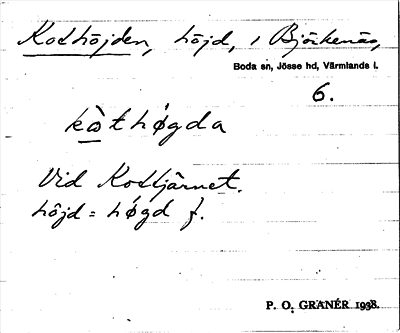 Kosthöjden, höjd, i Björkenäs,
Boda sn, Jösse hd, Värmlands l.
6.
kὼt hǿgda
Vid Kosttjärnet.
höjd = hǿgd f.
P. O. GRANÉR 1938.